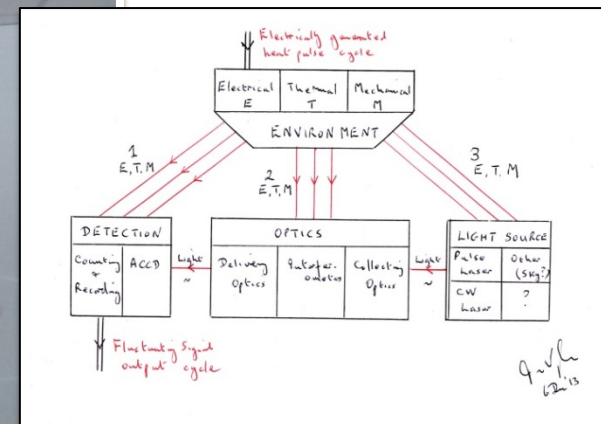 Electrically generated
heat pulse cycle
Electrical
E
Thermal
T
Mechanical
M
ENVIRONMENT
1
E, T, M
2
E, T, M
3
E, T, M
DETECTION
Counting
&
Recording
ACCD
Light
~
OPTICS
Delivery
Optics
Interfer-
ometer
Collecting
Optics
Light
~
LIGHT SOURCE
Pulse
Laser
Other
(Sky?)
CW
Laser
?
Fluctuating Signal
output cycle